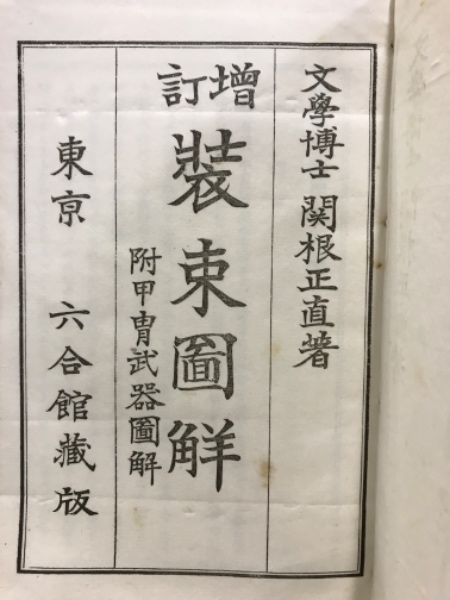 文學博士 関根正直著
增訂
裝束圖解
附甲冑武器圖解
東京 六合館藏版